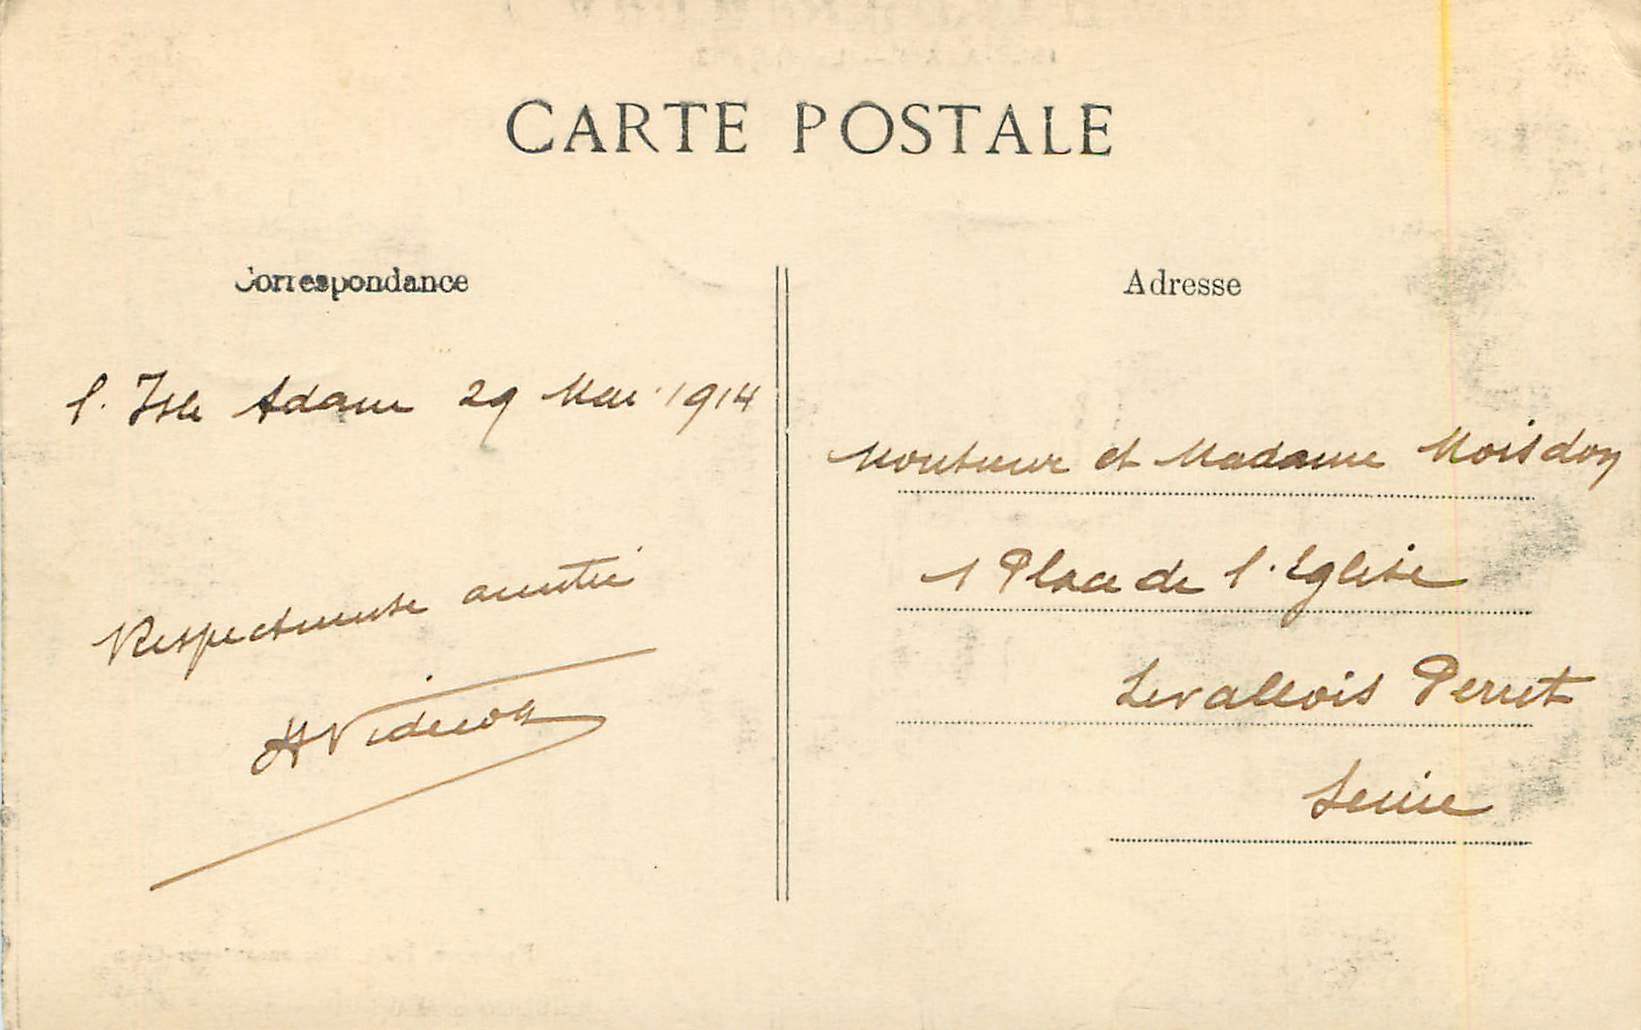 CARTE POSTALE
Correspondance
l'Isle Adam 29 Mai 1914
Respectueuse amitié
Adresse
Monsieur et Madame Moisdon
1 Place de l'Eglise
Levallois Perret
Seine